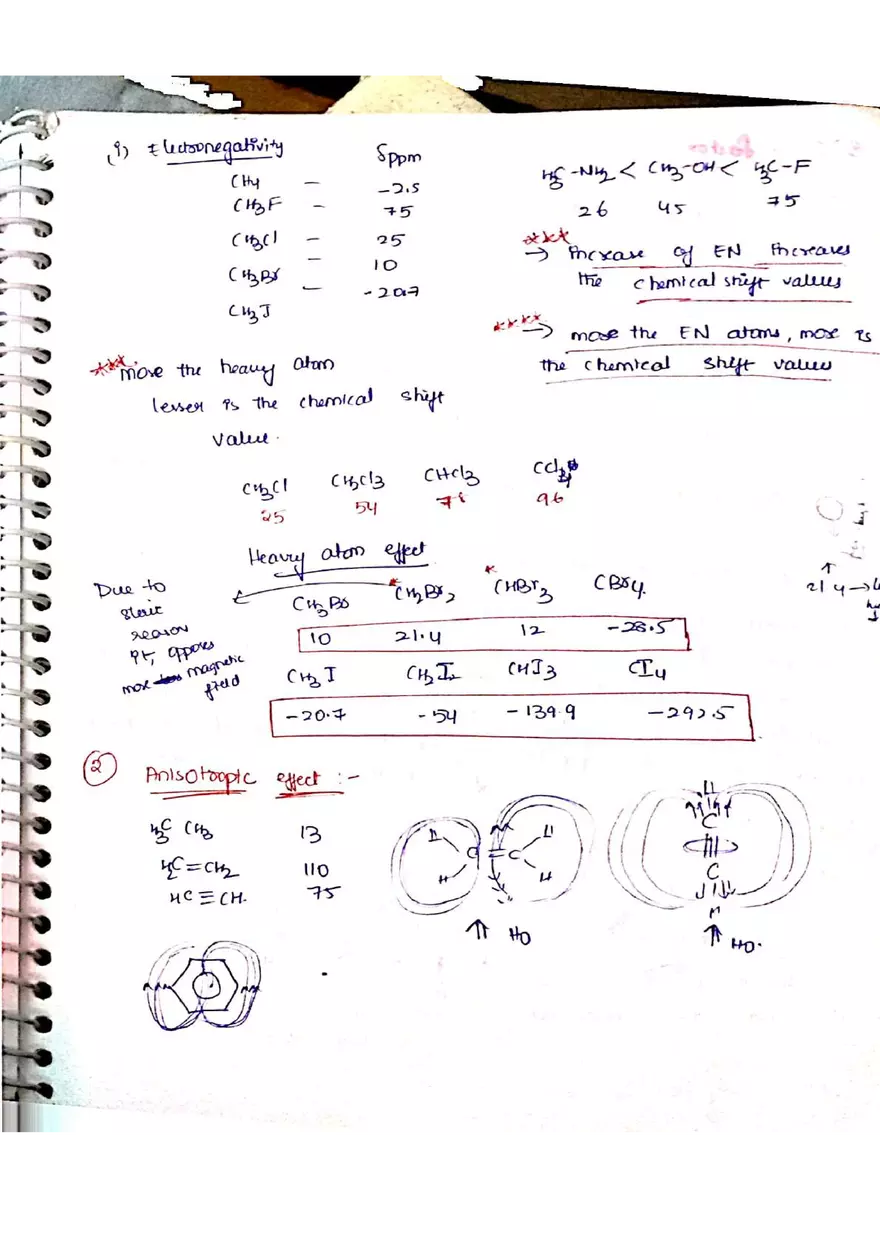 1) Electronegativity δppm
CH4 – -2.5
CH3F – 75
CH3Cl – 25
CH3Br – 10
CH3I – -20.7
H3C-NH2 < CH3-OH < H3C-F
26 45 75
*** → Increase of EN Increases
the chemical shift values
**** → more the EN atoms, more is
the chemical shift values
*** more the heavy atom
lesser is the chemical shift
value.
CH3Cl CH2Cl3 CHCl3 CCl4
25 54 78 96
Heavy atom effect
Due to
steric
reason
it, opposes
more magnetic
field
CH3Br *CH2Br2 *CHBr3 CBr4
10 21.4 12 -28.5
CH3I CH2I2 CHI3 CI4
-20.7 -54 -139.9 -292.5
↑
21 4 →
② Anisotropic effect :-
H3C CH3 13
H2C=CH2 110
HC≡CH. 75
H H
C = C
H H
⇑ HO
H
C
|||
C
H
⇑ HO.